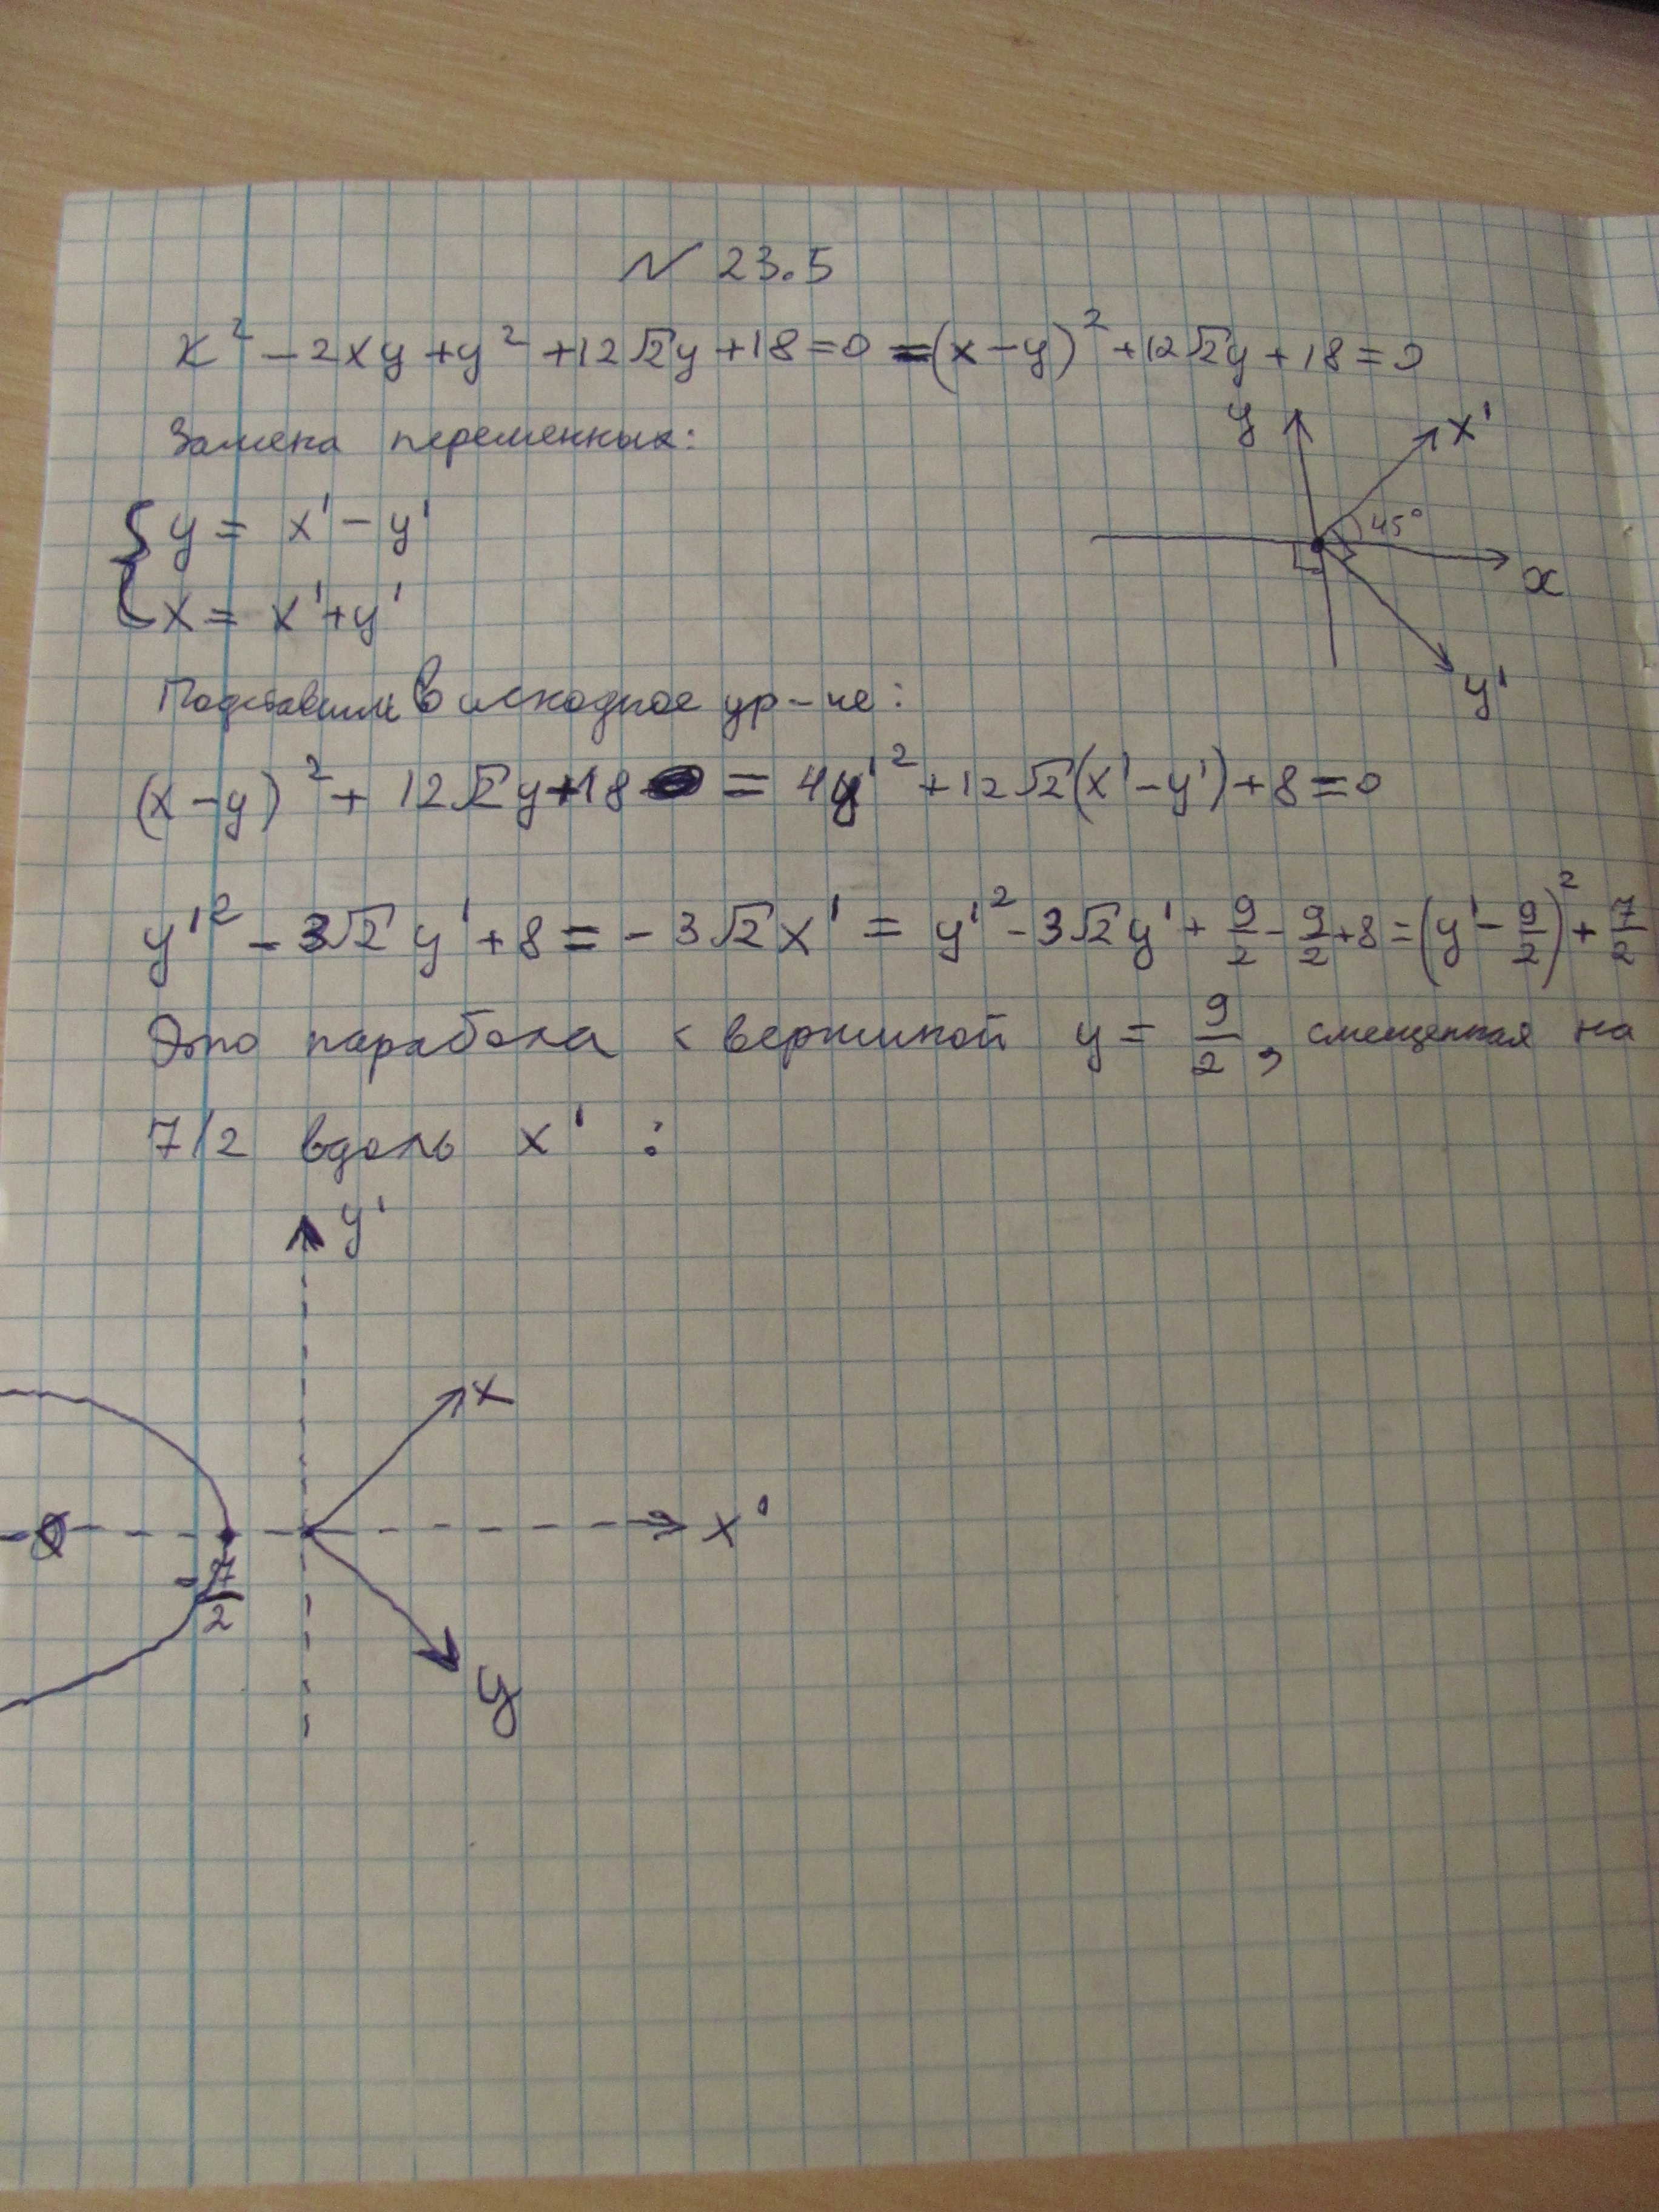 N 23.5
x² - 2xy + y² + 12√2y + 18 = 0 = (x - y)² + 12√2y + 18 = 0
Замена переменных:
y
x'
45°
x
y'
{ y = x' - y'
x = x' + y'
Подставим в исходное ур-не:
(x - y)² + 12√2y + 18 = 4y'² + 12√2(x' - y') + 8 = 0
y'² - 3√2 y' + 8 = - 3√2 x' = y'² - 3√2y' + 9/2 - 9/2 + 8 = (y' - 9/2)² + 7/2
Это парабола с вершиной y = 9/2, смещенная на
7/2 вдоль x' :
y'
x
x'
-7/2
y